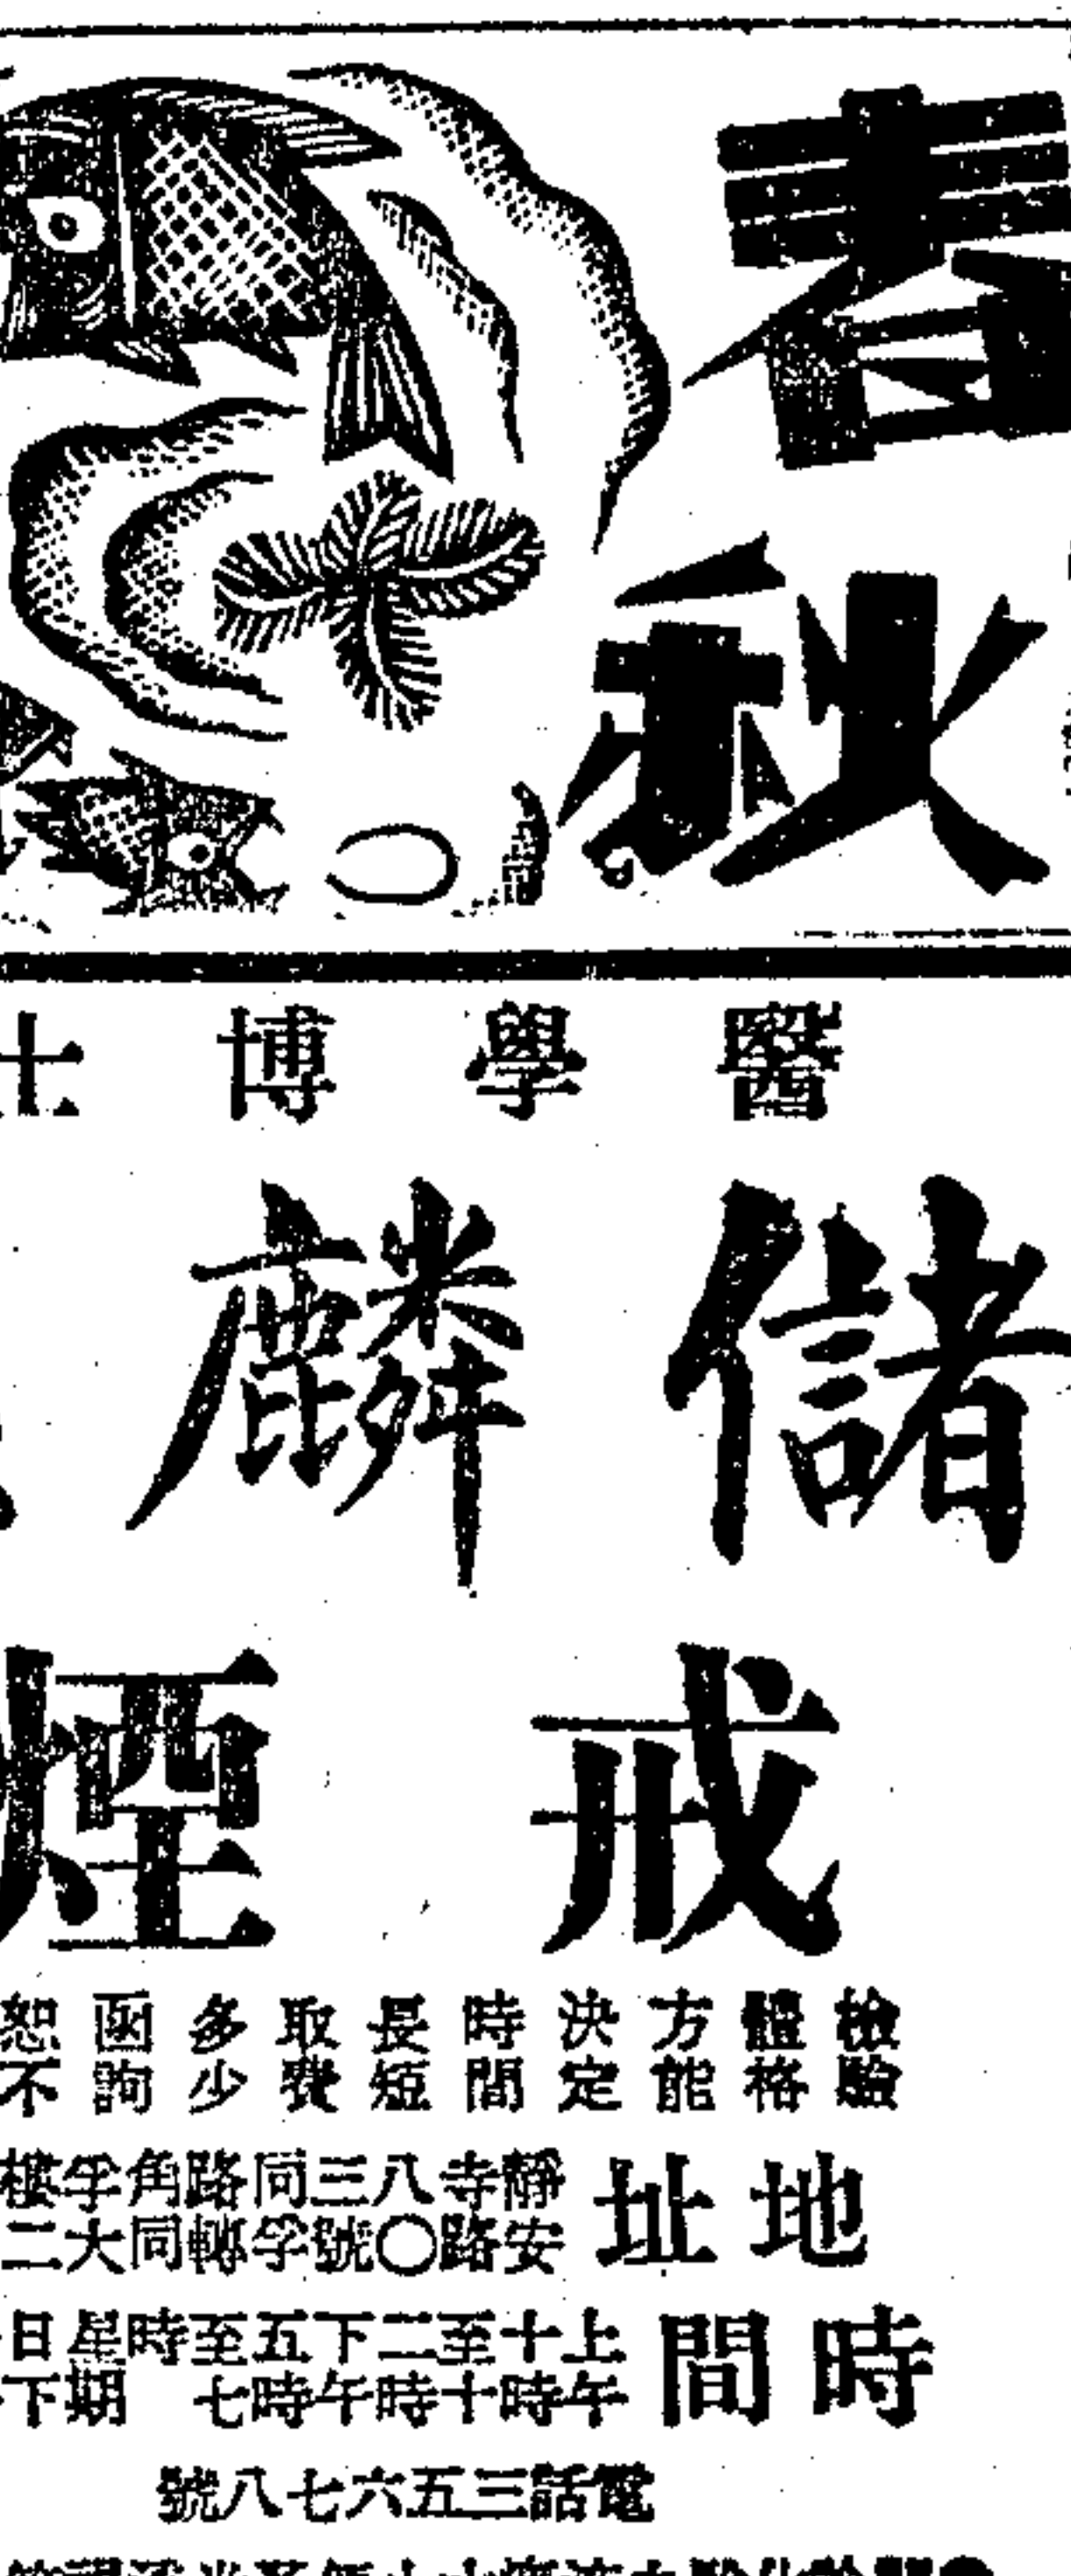 春秋
醫學博士
儲麟
戒煙
檢驗體格方能決定時間長短取費多少函詢恕不
地址 靜安寺路八〇三號同孚路轉角同孚大樓二
時間 上午十時至十二時下午五時至七時 星期日下
電話三五六七八號